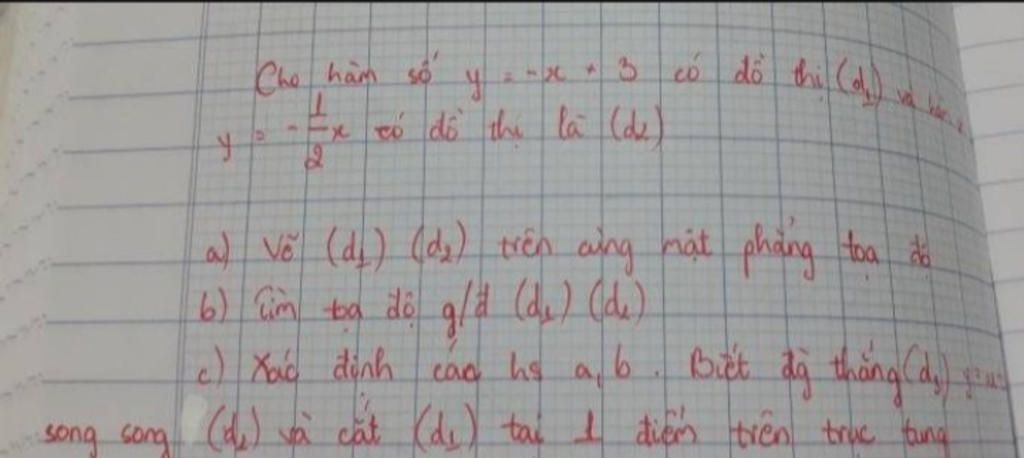 Cho hàm số y = -x + 3 có đồ thị (d₁) và hàm
y = -1/2 x có đồ thị là (d₂)
a) Vẽ (d₁) (d₂) trên cùng mặt phẳng tọa độ
b) Tìm tọa độ g/đ (d₁) (d₂)
c) Xác định các hs a, b. Biết đg thẳng (d₃)
song song (d₂) và cắt (d₁) tại 1 điểm trên trục tung